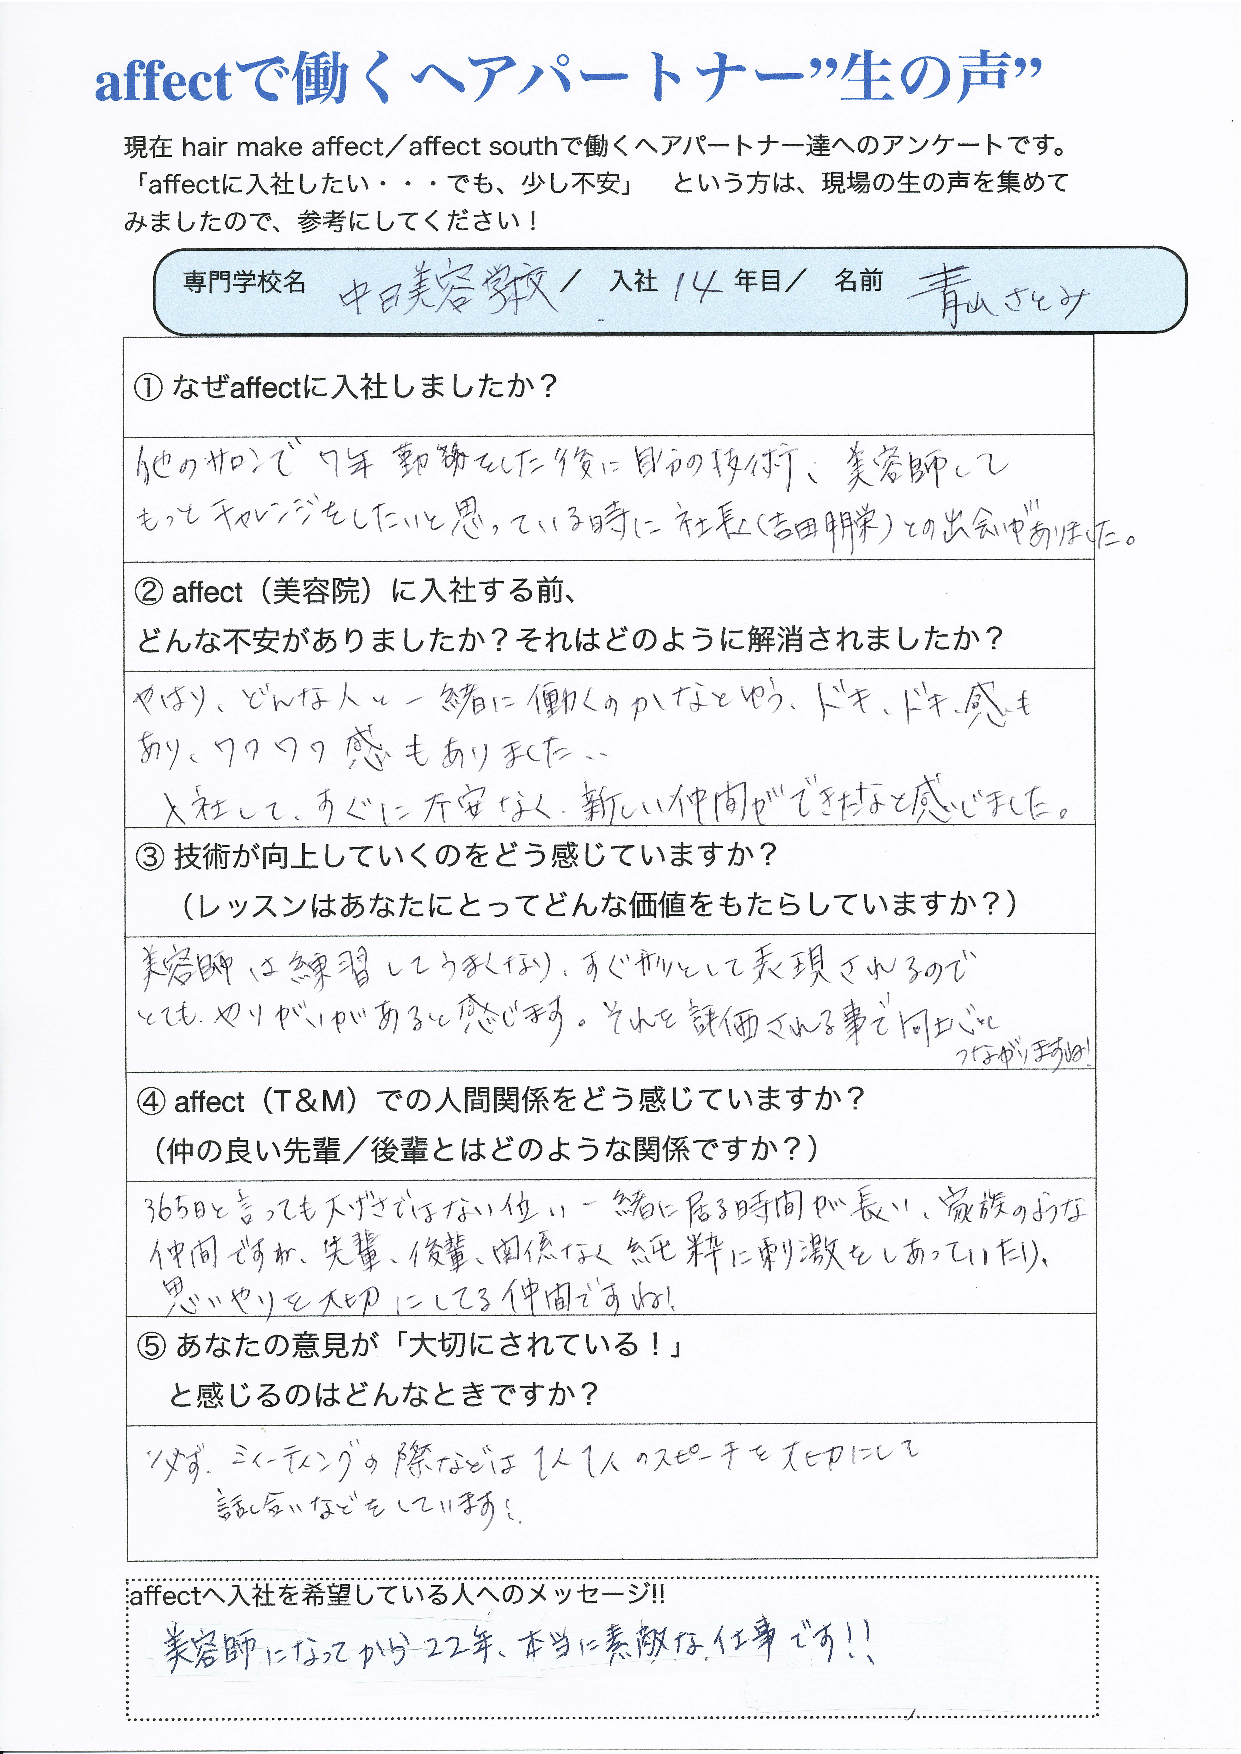 affectで働くヘアパートナー”生の声”
現在 hair make affect／affect southで働くヘアパートナー達へのアンケートです。
「affectに入社したい・・・でも、少し不安」　という方は、現場の生の声を集めて
みましたので、参考にしてください！
専門学校名 中日美容学校 ／ 入社 14 年目／ 名前 青山さとみ
① なぜaffectに入社しましたか？
他のサロンで 7年 勤務をした後に自分の技術、美容師して
もっとチャレンジをしたいと思っている時に社長(吉田朋栄)との出会いがありました。
② affect（美容院）に入社する前、
どんな不安がありましたか？それはどのように解消されましたか？
やはり、どんな人と一緒に働くのかなとゆう、ドキ、ドキ、感も
あり、ワクワク感もありました..
入社して、すぐに不安なく、新しい仲間ができたなと感じました。
③ 技術が向上していくのをどう感じていますか？
（レッスンはあなたにとってどんな価値をもたらしていますか？）
美容師は練習してうまくなり、すぐ形として表現されるので
とても、やりがいがあると感じます。それを評価される事で向上心に
つながりますね!
④ affect（T＆M）での人間関係をどう感じていますか？
（仲の良い先輩／後輩とはどのような関係ですか？）
365日と言っても大げさではない位い一緒に居る時間が長い、家族のような
仲間ですが、先輩、後輩、関係なく純粋に刺激をしあっていたり、
思いやりを大切にしてる仲間ですね!
⑤ あなたの意見が「大切にされている！」
と感じるのはどんなときですか？
必ず、ミィーティングの際などは1人1人のスピーチを大切にして
話し合いなどをしています!
affectへ入社を希望している人へのメッセージ!!
美容師になってから22年、本当に素敵な仕事です!!